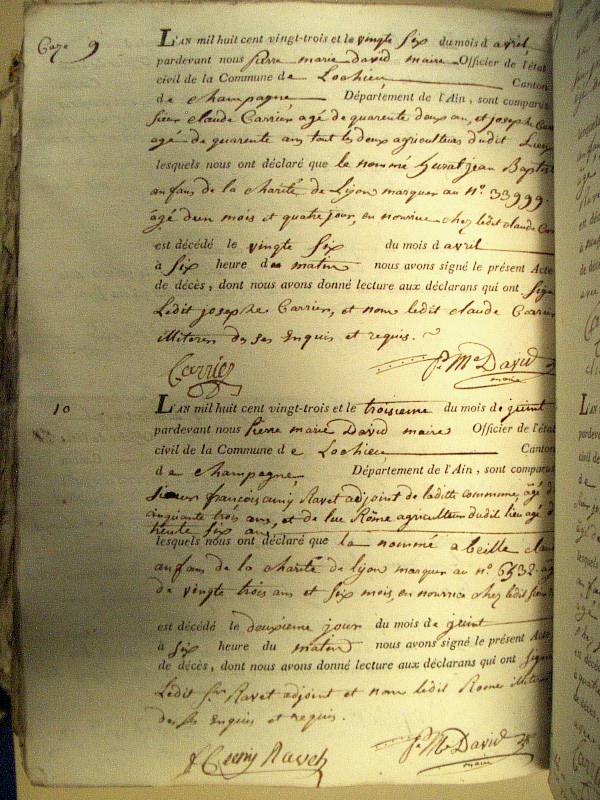 9
L'AN mil huit cent vingt-trois et le vingt six du mois d avril
pardevant nous pierre marie david maire Officier de l'état
civil de la Commune de Lochieu Canton
de champagne Département de l'Ain, sont comparus
Sieur claude Carrier agé de quarente deux ans, et joseph
agé de quarente ans tout les deux agriculteurs dudit Lieu
lesquels nous ont déclaré que le nommé jean Baptis
anfans de la charité de Lyon marquer au n.º 33999.
âgé dun mois et quatre jour, en nourrice chez ledit claude
est décédé le vingt Six du mois d avril
à Six heure du matin nous avons signé le présent Acte
de décès, dont nous avons donné lecture aux déclarans qui ont Signé
Ledit joseph Carrier, et nom ledit claude Carrier
illiteres de ses Enquis et requis.
Carrier
P. Mie David
maire
10
L'AN mil huit cent vingt-trois et le troisieme du mois de jeint
pardevant nous pierre marie David maire Officier de l'état
civil de la Commune de Lochieu Canton
de champagne Département de l'Ain, sont comparus
Sieur françois Ravet adjoint de ladite commune, âgé d
cinquante trois ans, et de luc Rôme agriculteur dudit lieu agé d
trente six ans
lesquels nous ont déclaré que la nommé abeille
anfans de la charité de lyon marquer au n.º
de vingt trois ans et Six mois, en nourrice chez ledit
est décédé le deuxieme jour du mois de jeint
à Six heure du matin nous avons signé le présent Acte
de décès, dont nous avons donné lecture aux déclarans qui ont Signé
Ledit Ravet adjoint et nom ledit Rome illiteres
de ses Enquis et requis.
Ravet
P. Mie David
maire